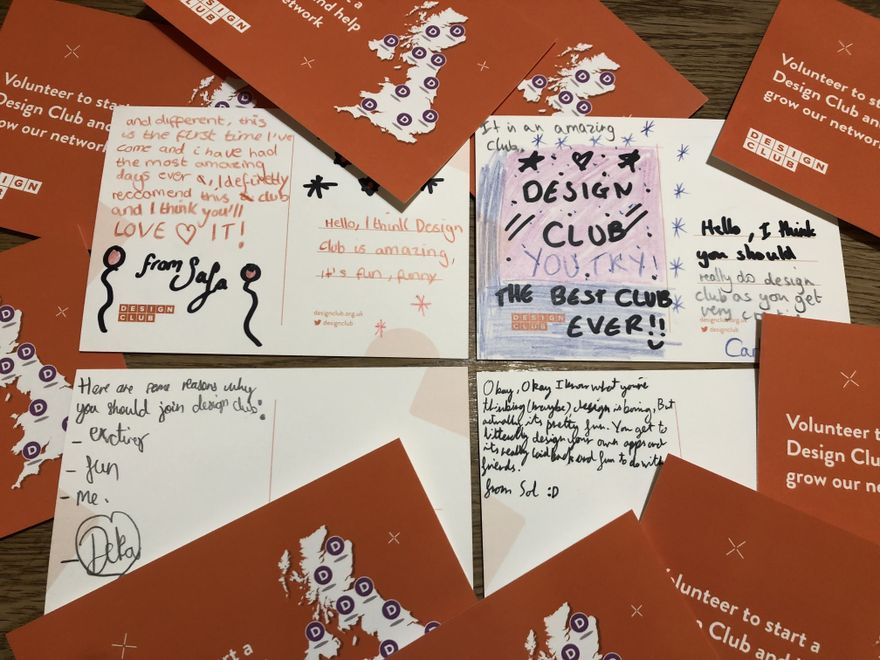 DESIGN
CLUB
Volunteer to sta
Design Club and
grow our network
DESIGN
CLUB
a
nd help
network
Volunteer to start
Design Club and
grow our network
DESIGN
CLUB
and different, this
is the first time I've
come and i have had
the most amazing
days ever &, I definetly
reccomend this club
and I think you'll
LOVE ♡ IT!
from Safa
DESIGN
CLUB
Hello, I think Design
Club is amazing,
it's fun, funny
designclub.org.uk
designclub
It is an amazing
club.
DESIGN
CLUB
YOU TRY!
THE BEST CLUB
EVER!!
DESIGN
CLUB
Hello, I think
you should
really do design
club as you get
very
designclub.org.uk
designclub
Car
Here are some reasons why
you should join design club:
- exciting
- fun
- me.
- Deka
Okay, Okay I know what you're
thinking (maybe) design is boring, But
actually its pretty fun. You get to
litterally design your own apps and
its really laid back and fun to do with
friends.
from Sol :D
Volunteer t
Design Clu
grow our n
to start a
lunteer to start a
n Club and